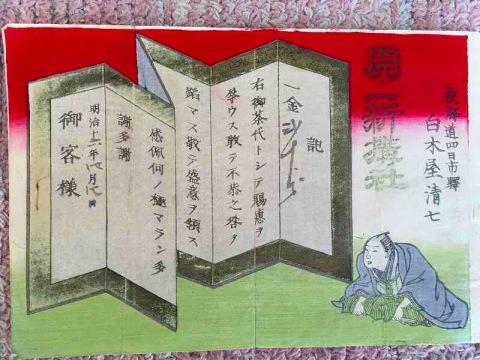 東海道四日市驛
白木屋清七
一新講社
記
一金
右御茶代トシテ賜惠ヲ
辱ウス敢テ不恭之咎ヲ
マス敢テ盛意ヲ領ス
感佩何ノ極マラン多
謝多謝
明治十六年 月 日
御客様